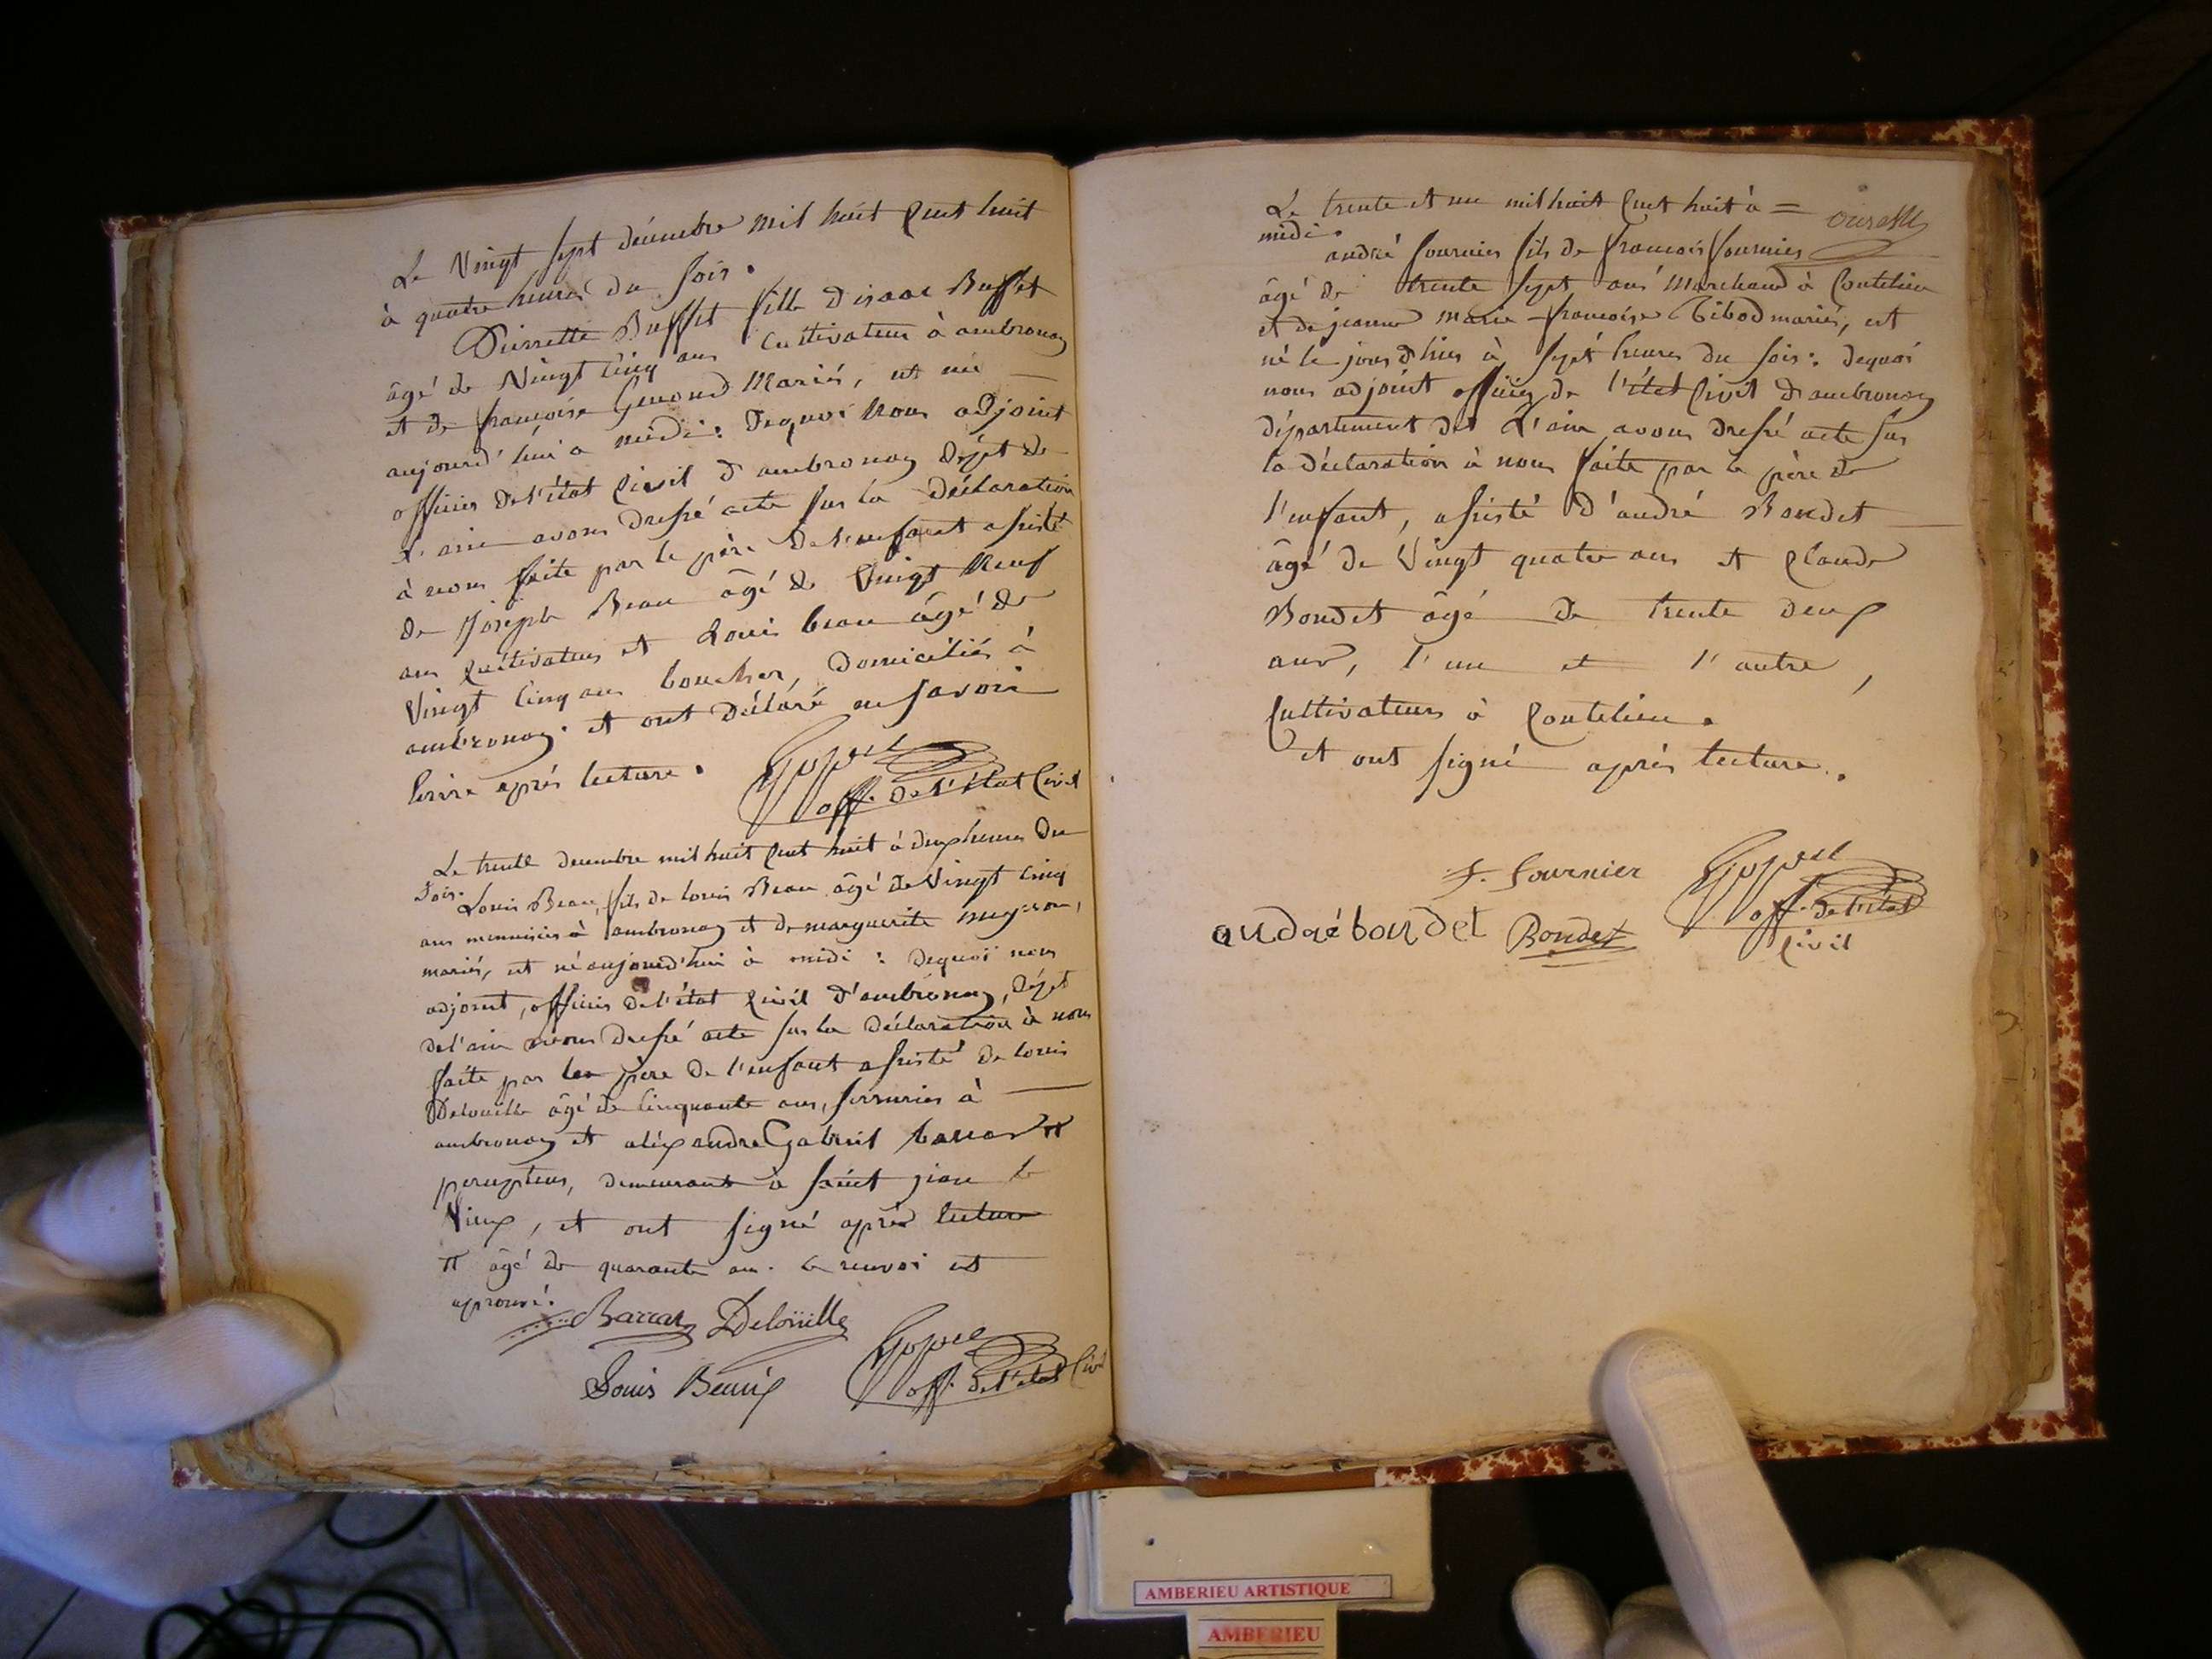 Le Vingt sept décembre mil huit cent huit
à quatre heures du soir.
Pierrette Buffet fille d'isaac Buffet
âgé de Vingt cinq ans cultivateur à ambronay
et de françoise Genond Mariés, est née
aujourd'hui a midi: Dequoi Nous adjoint
officier de l'état civil d'ambronay dépt de
l'ain avons dressé acte sur la déclaration
à nous faite par le père de l'enfant assisté
de Joseph Beau âgé de Vingt Neuf
ans cultivateur et Louis beau âgé de
Vingt cinq ans boucher, domiciliés à
ambronay. et ont déclaré ne savoir
écrire après lecture.
off. de l'état civil
Le trente decembre mil huit cent huit à deux heures du
soir. Louis Beau, fils de louis Beau âgé de Vingt cinq
ans menuisier à ambronay et de marguerite
mariés, est né aujourd'hui à midi : dequoi nous
adjoint, officier de l'état civil d'ambronay, dépt
de l'ain avons dressé acte sur la déclaration à nous
faite par le père de l'enfant assisté de louis
Delouille âgé de cinquante ans, serrurier à
ambronay et aléxandre Gabriel
percepteur, demeurant à saint jean le
Vieux, et ont signé après lecture
π âgé de quarante ans. le renvoi est
aprouvé.
Delouille
Louis Beau
off. de l'état civil
Le trente et un mil huit cent huit à =
midi.
andré fournier fils de françois fournier
âgé de trente sept ans Marchand à Coutelieu
et de jeanne marie françoise Tibod mariés, est
né le jour d'hier à sept heures du soir: dequoi
nous adjoint officier de l'état civil d'ambronay
département de L'ain avons dressé acte sur
la déclaration à nous faite par le père de
l'enfant, assisté d'andré Bondet
âgé de Vingt quatre ans et claude
Bondet âgé de trente deux
ans, l'un et l'autre,
cultivateurs à Coutelieu.
et ont signé après lecture.
f. fournier
off. de l'état
civil
andré bondet Bondet
AMBERIEU ARTISTIQUE
AMBERIEU